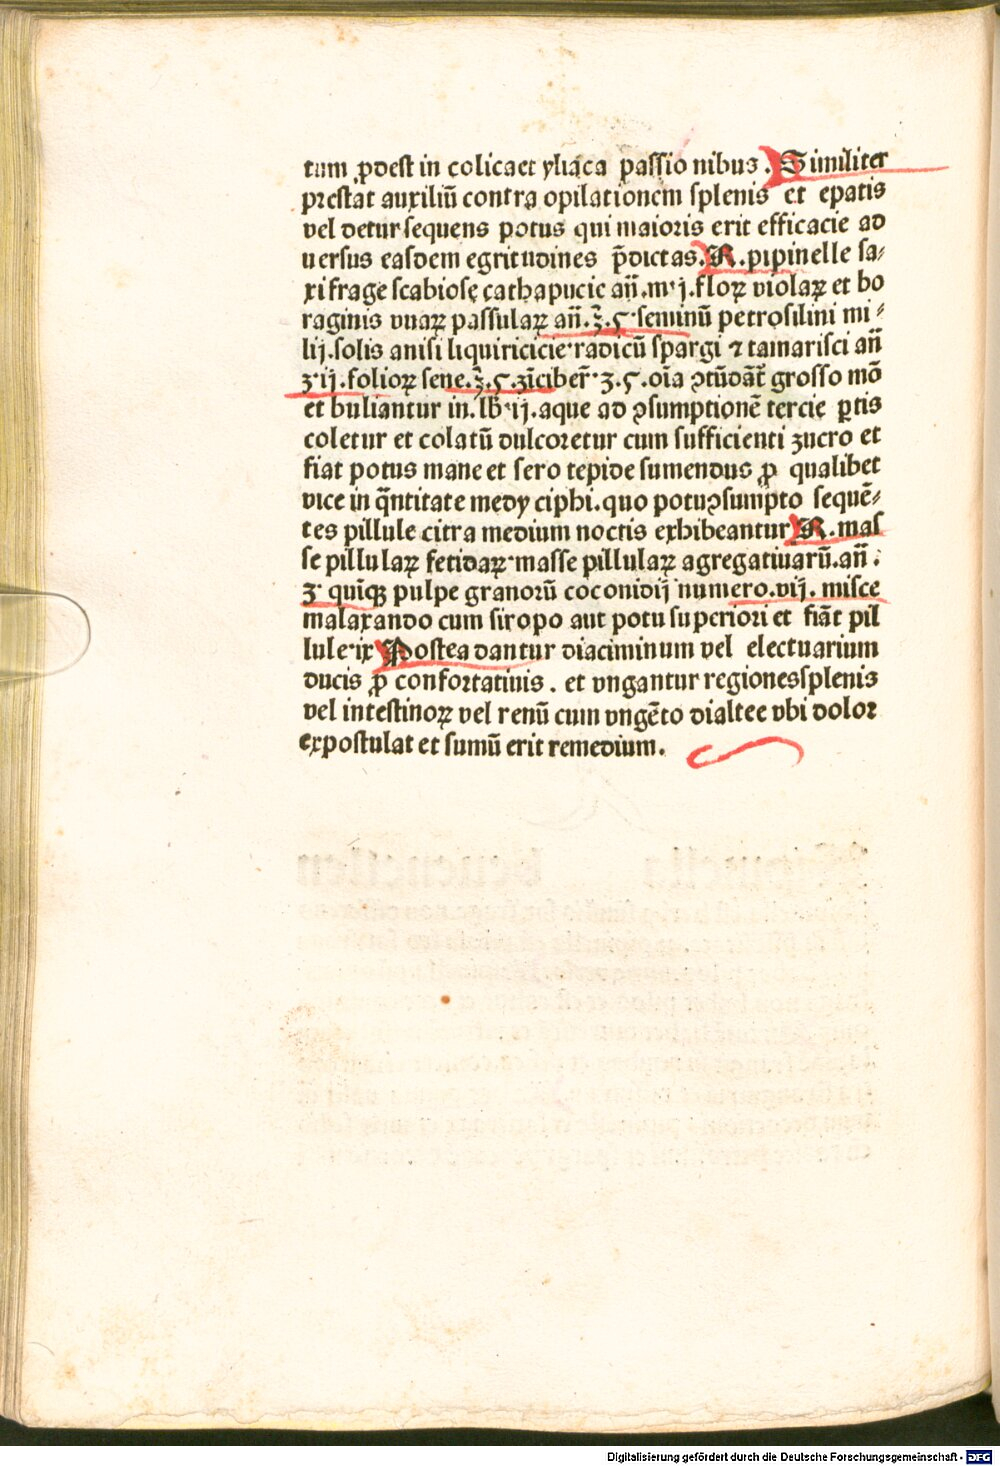 tum ꝓdest in colica et yliaca passio nibus. Similiter
prestat auxiliū contra opilationem splenis et epatis
vel detur sequens potus qui maioris erit efficacie ad
uersus easdem egritudines p̄dictas. R. pipinelle sa⸗
xifrage scabiose cathapucie an̄. m̊ j. floꝝ violaꝝ et bo
raginis vuaꝝ passulaꝝ an̄. ℥. ς. seminū petrosilini mi⸗
lij. solis anisi liquiricicie radicū spargi ⁊ tamarisci an̄
ʒ ij. folioꝝ sene. ℥. ς. zīciber̄. ʒ. ς. oīa ꝯtūdāt̄ grosso mō
et buliantur in. lb̄. ij. aque ad ꝯsumptionē tercie ꝑtis
coletur et colatū dulcoretur cum sufficienti zucro et
fiat potus mane et sero tepide sumendus ꝓ qualibet
vice in q̄ntitate medy ciphi. quo potu ꝯsumpto sequē⸗
tes pillule citra medium noctis exhibeantur R. mas
se pillulaꝝ fetidaꝝ masse pillulaꝝ agregatiuarū. an̄.
ʒ quīqꝫ pulpe granorū coconidij numero. vij. misce
malaxando cum siropo aut potu superiori et fiāt pil
lule ix Postea dantur diaciminum vel electuarium
ducis ꝓ confortatiuis. et vngantur regiones splenis
vel intestinoꝝ vel renū cum vngēto dialtee vbi dolor
expostulat et sumū erit remedium.
Digitalisierung gefördert durch die Deutsche Forschungsgemeinschaft - DFG